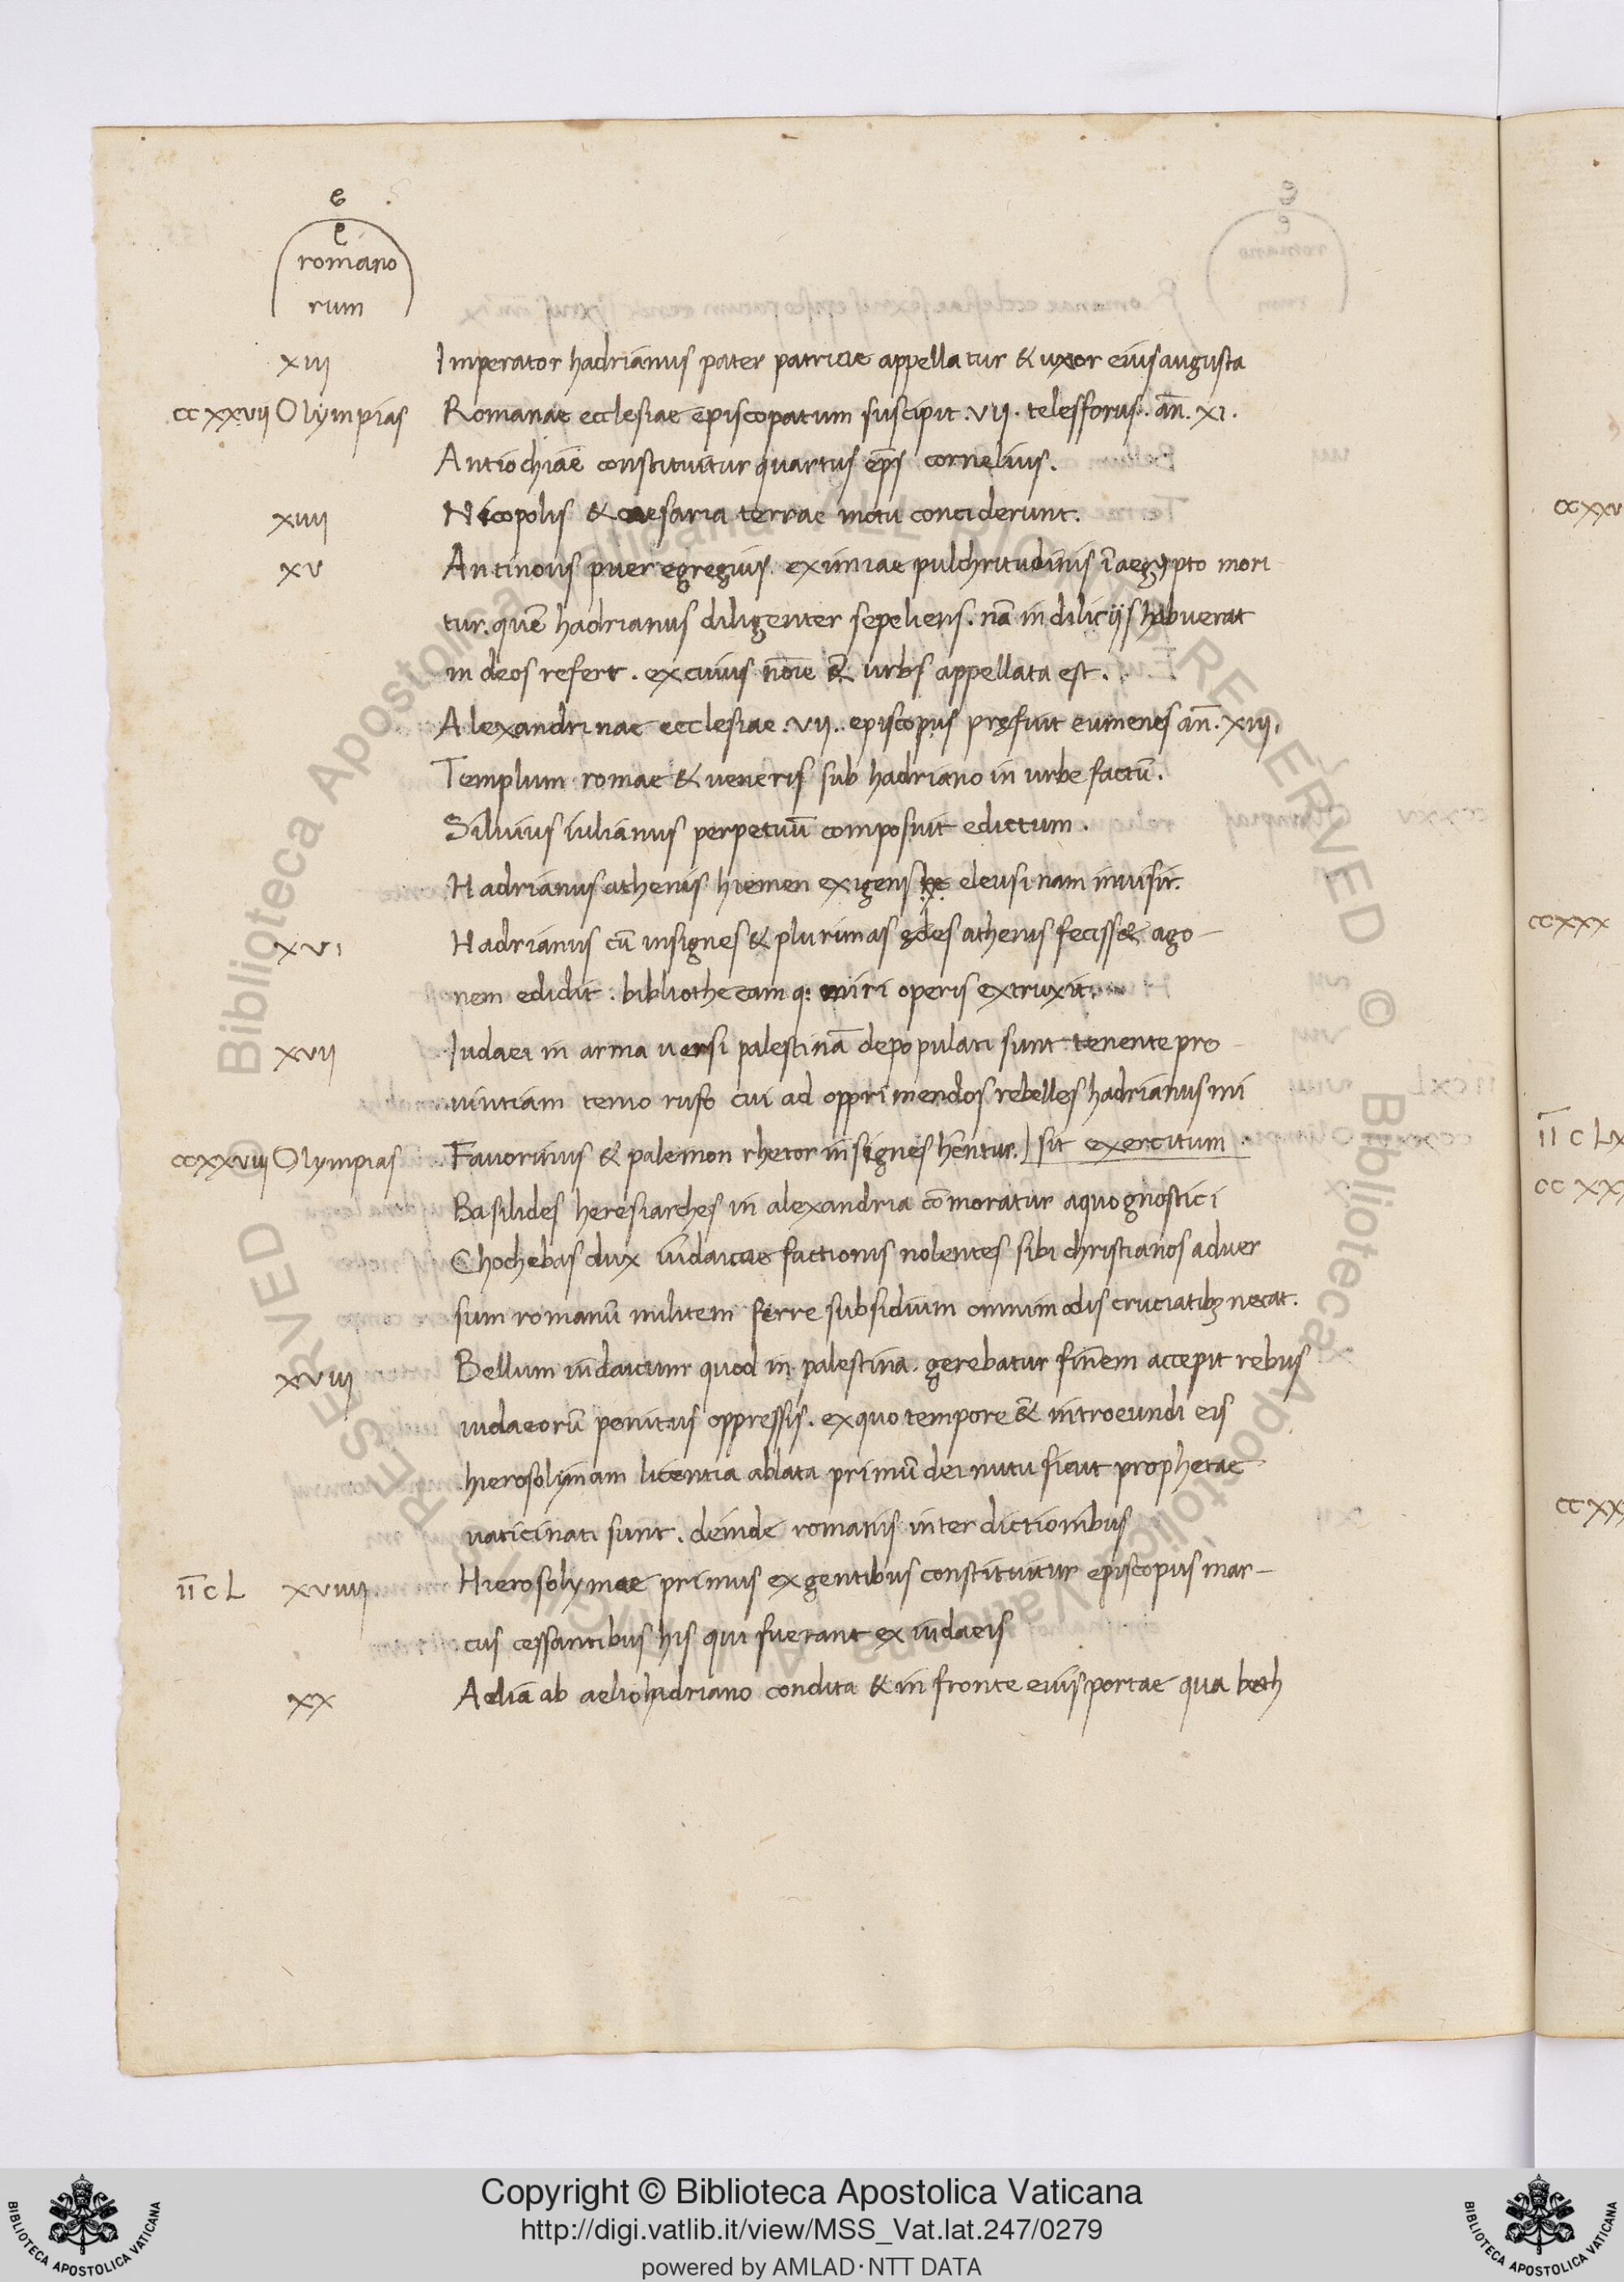 romano
rum
xiii Imperator hadrianus pater patriae appellatur & uxor eius augusta
ccxxvii Olympias Romanae ecclesiae episcopatum suscipit .vii. telesforus. an̄. xi.
Antiochiae constituitur quartus ep̄s cornelius.
xiiii Nicopolis & caesaria terrae motu conciderunt.
xv Antinous puer egregius. eximiae pulchritudinis ī aegypto mori
tur. quē hadrianus diligenter sepeliens. nā in diliciis habuerat
in deos refert. ex cuius noīe & urbs appellata est.
Alexandrinae ecclesiae .vii. episcopus pręfuit eumenes an̄. xiii.
Templum romae & ueneris sub hadriano in urbe factū.
Siluius iulianus perpetuū composuit edictum.
Hadrianus athenis hiemen exigens eleusinam inuisit.
xvi Hadrianus cū insignes & plurimas ędes athenis feciss& ago-
nem edidit: bibliothecamq: miri operis extruxit.
xvii Iudaei in arma uersi palestinā depopulati sunt tenente pro
uintiam tenio rufo cui ad opprimendos rebelles hadrianus mi
ccxxviii Olympias Fauorinus & palemon rhetor insignes hēntur.) sit exercitum
Basilides heresiarches in alexandria cōmoratur a quo gnostici
Chochebas dux iudaicae factionis nolentes sibi christianos aduer
sum romanū militem ferre subsidium omnimodis cruciatibꝫ necat.
xviii Bellum iudaicum quod in palestina. gerebatur finem accepit rebus
iudaeorū penitus oppressis. ex quo tempore & introeundi eis
hierosolymam licentia ablata primū dei nutu sicut prophetae
uaticinati sunt. deinde romanis interdictionibus
īīcL xviiii Hierosolymae primus ex gentibus constituitur episcopus mar-
cus cessantibus his qui fuerant ex iudaeis
xx Aelia ab aelio hadriano condita & in fronte eius portae qua beth
ccxxx
īīcLx
Copyright © Biblioteca Apostolica Vaticana
http://digi.vatlib.it/view/MSS_Vat.lat.247/0279
powered by AMLAD·NTT DATA
BIBLIOTECA APOSTOLICA VATICANA
BIBLIOTECA APOSTOLICA VATICANA